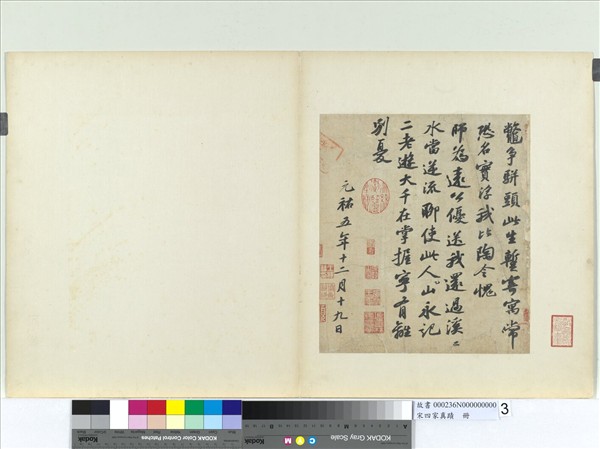 鼇争駢頭此生暫寄寓常
恐名實浮我比陶令愧
師為遠公優送我還過溪〻
水當逆流聊使此人山永記
二老遊大千在掌握寧有離
別憂
元祐五年十二月十九日
KODAK Color Control Patches
C Y M
KODAK Gray Scale
故書 000236N000000000
宋四家真蹟 冊
3